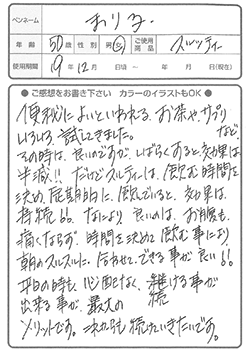 ペンネーム おりょう
年齢 50歳 性別 男・女 ご使用商品 スルッティー
使用期間 19年12月 日頃 ~ 年 月 日(現在)
●ご感想をお書き下さい カラーのイラストもOK●
便秘によいといわれる、お茶や、サプリなど
いろいろ、試してきました。
その時は、良いのですが、しばらくすると効果は
半減!! だけどスルッティーは、飲む時間を
決め、定期的に、飲んでいると、効果は、
持続しています。なにより良いのは、お腹も、
痛くならず、時間を決めて飲む事により
朝のスルスルに、合わせてできる事が良い!!
平日の時も、心配なく、継続する事が
出来る事が、最大の
メリットです。これからも続けていきたいです。